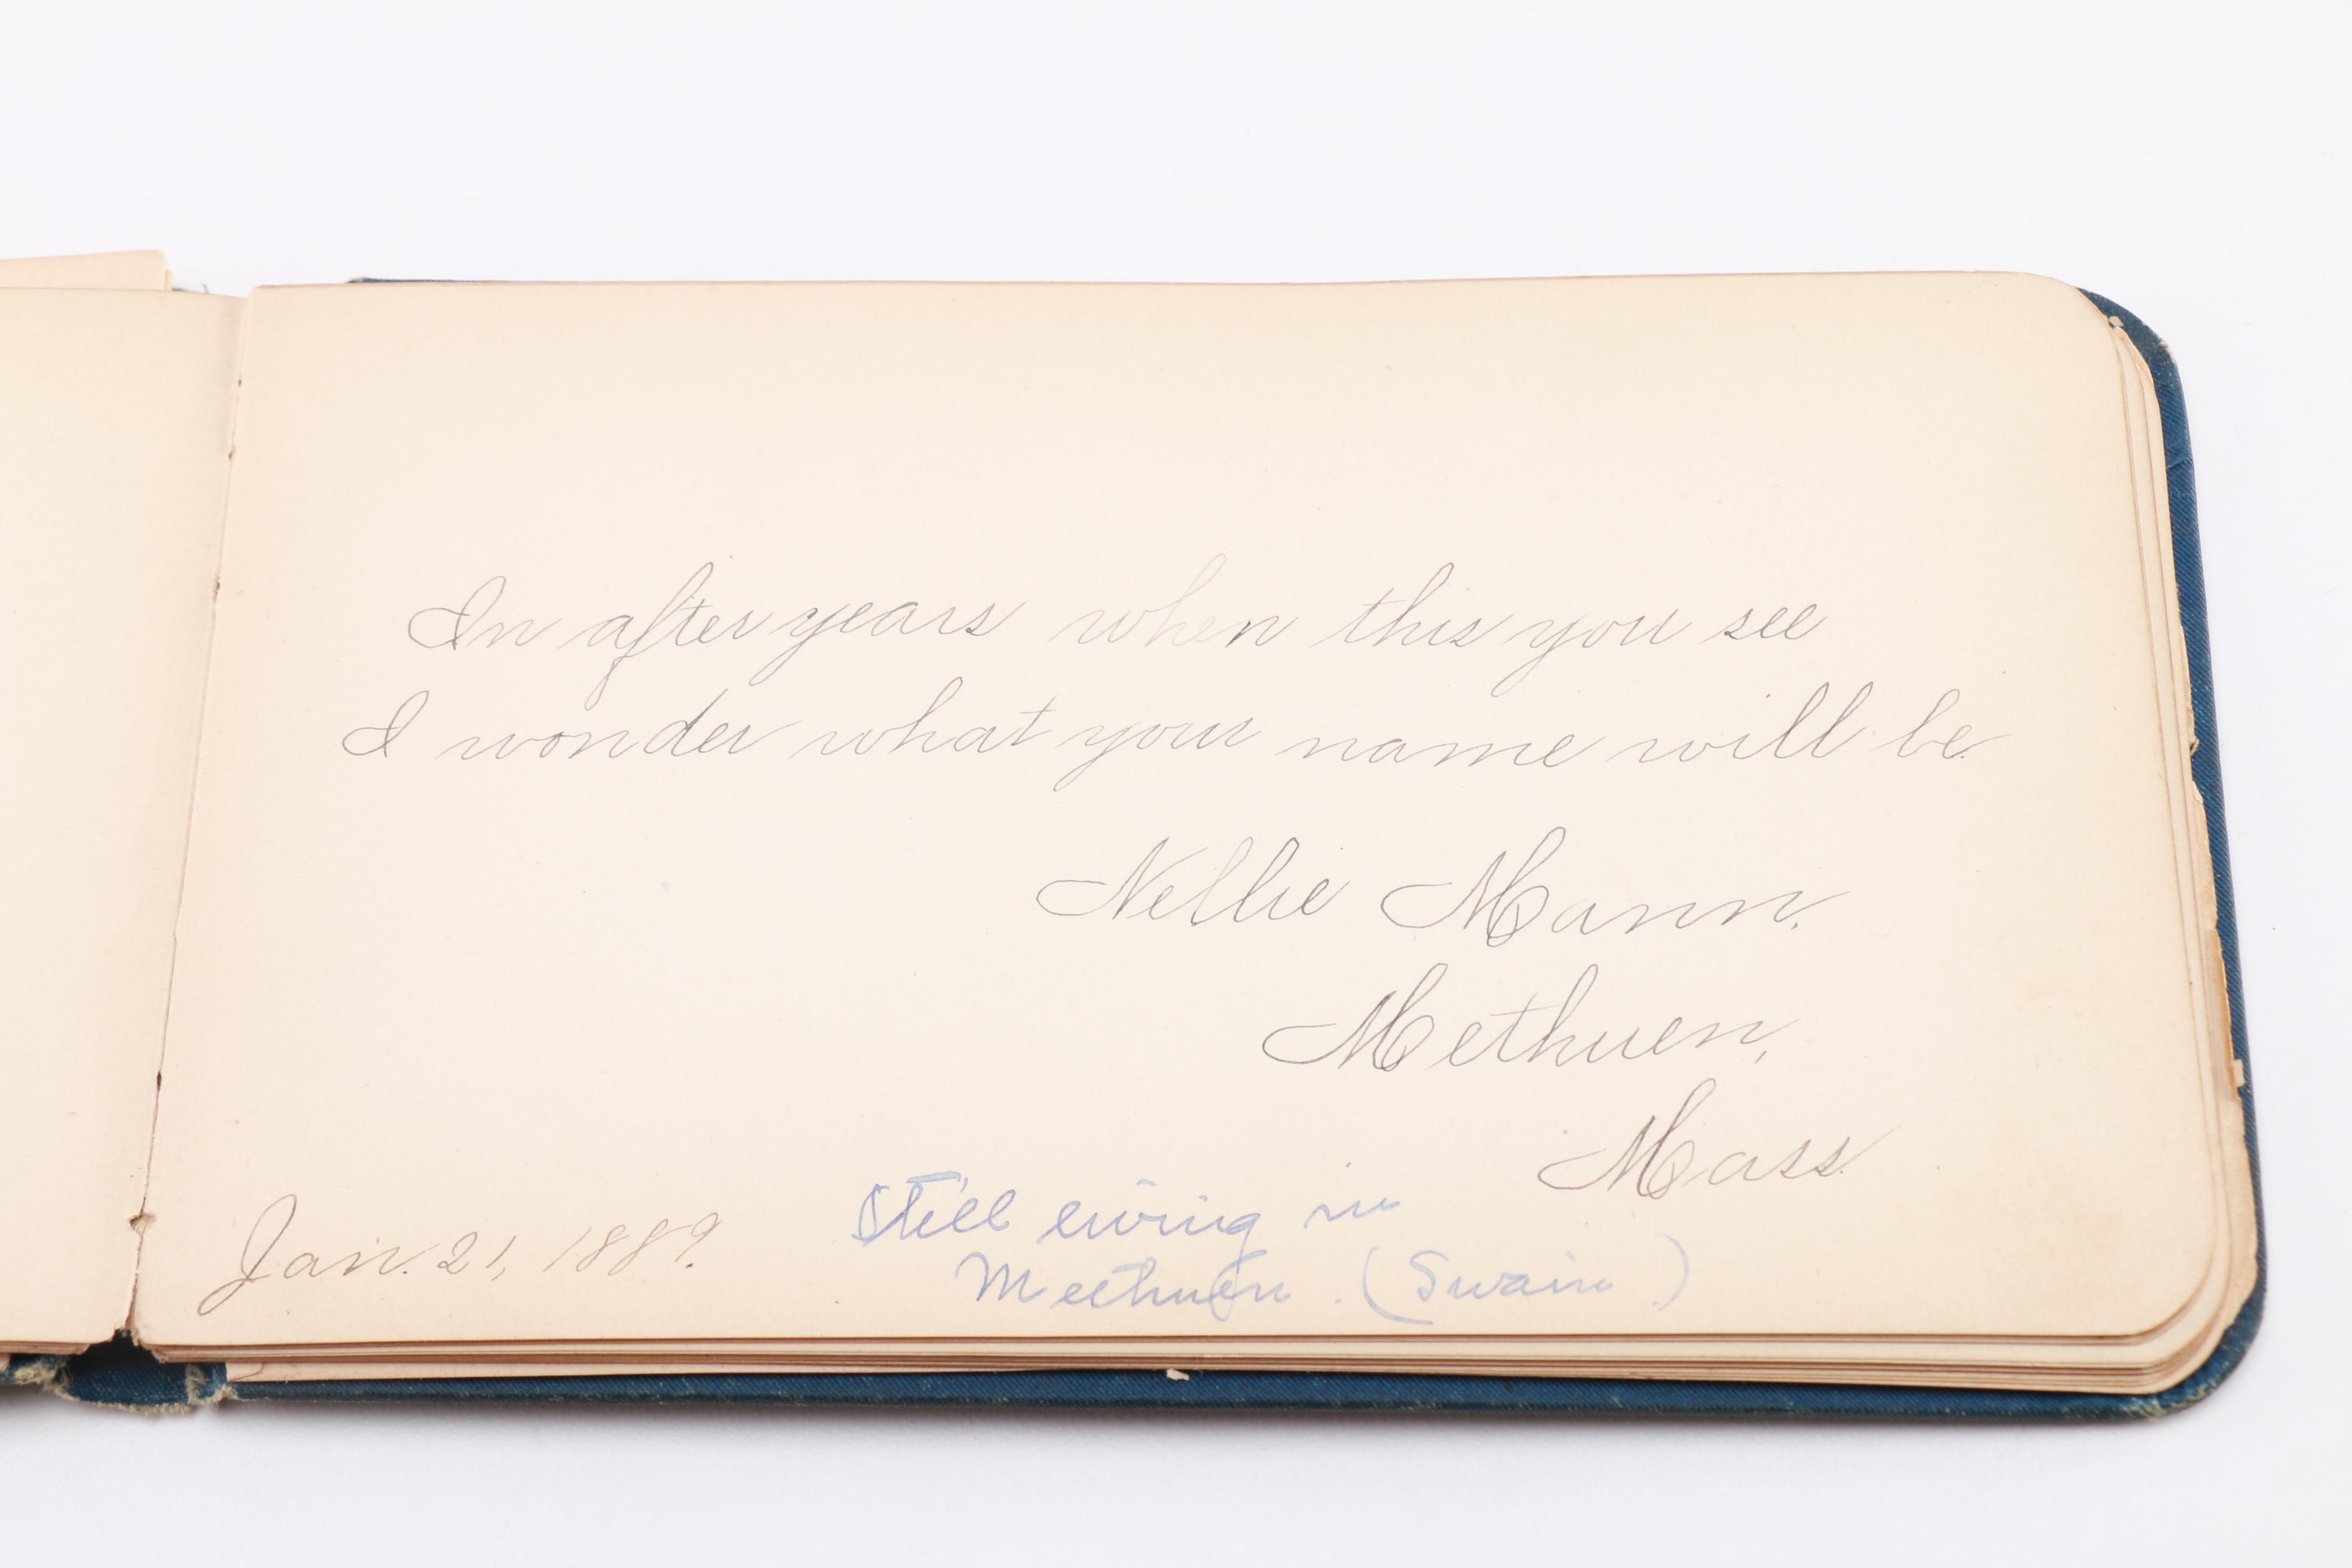 In after years when this you see
I wonder what your name will be.
Nellie Mann.
Methuen,
Mass.
Jan. 21, 1889.
Still living in
Methuen. (Swain.)